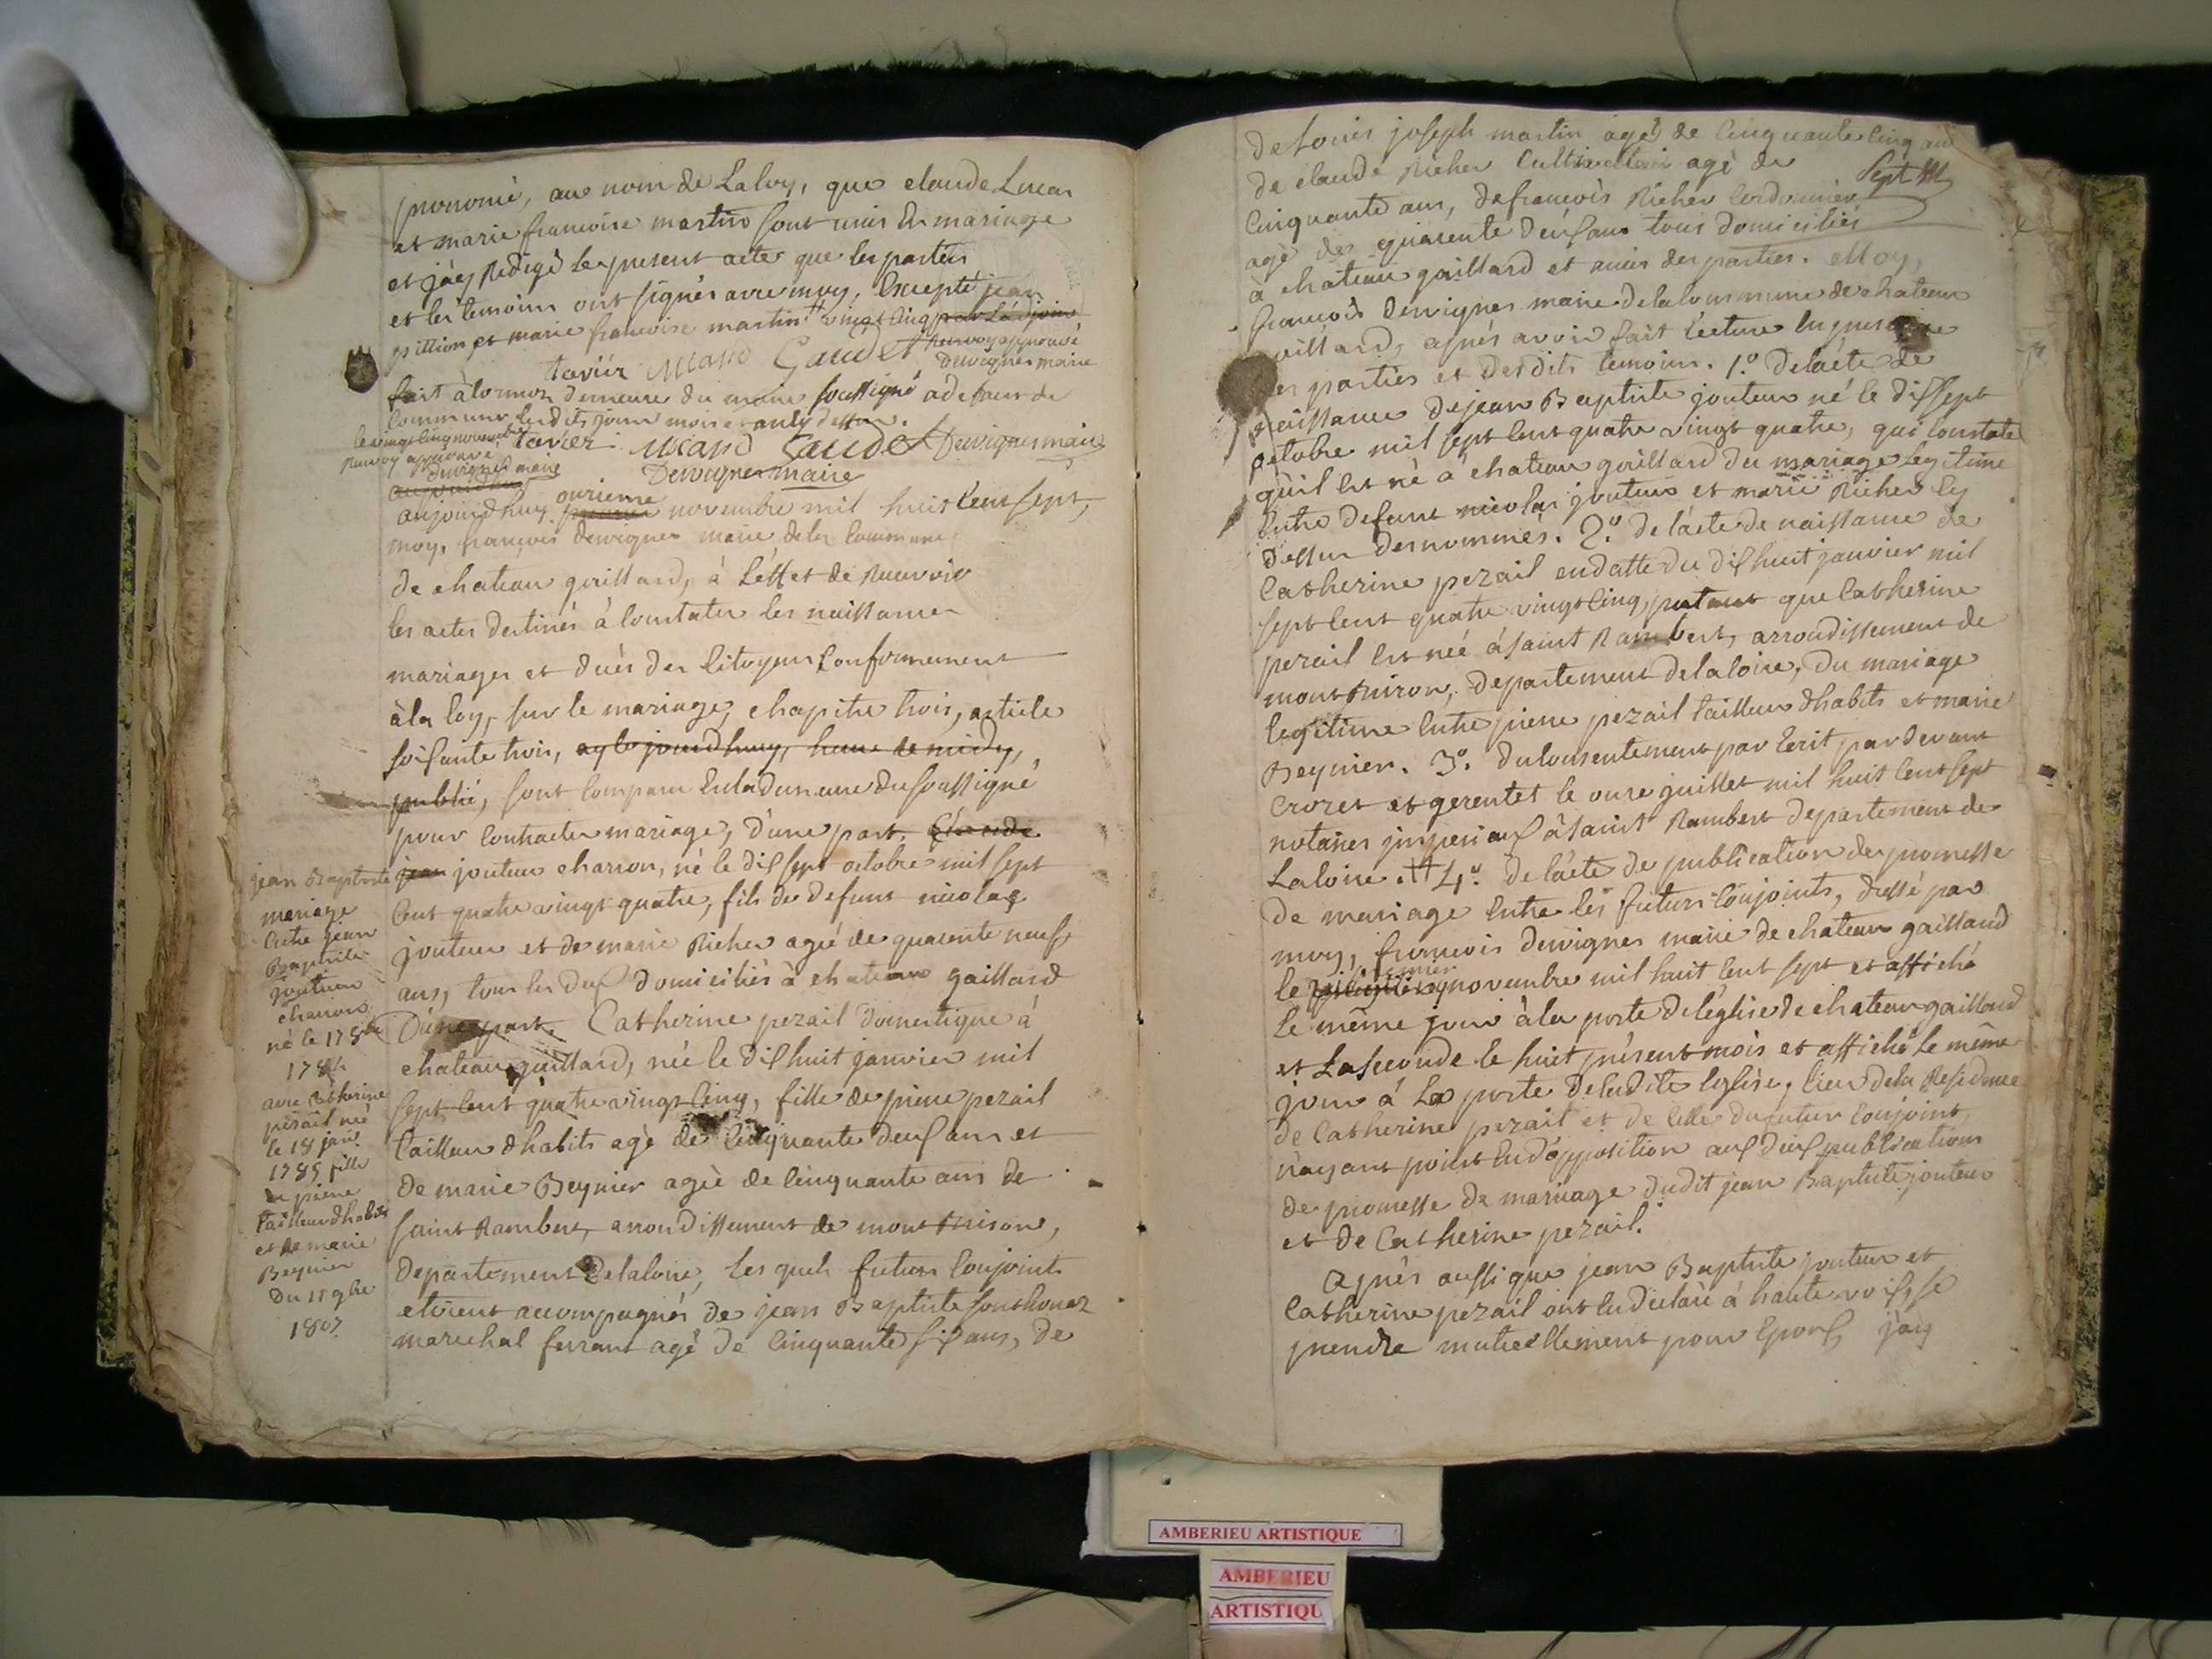 prononcé, au nom de La loy, que claude Lucas
et marie francoise martin sont unis En mariage
et j'ay Redigé le present acte que les parties
et les temoins ont signés avec moy, Excepté jean
pittion et marie francoise martin vingt cinq
Renvoy approuvé
tavier Gaudet Dervignes maire
fait à la maison demeure du maire soussigné a defaut de
commune lesdits jour mois et an cy dessus.
le vingt cinq novembre tavier Gaudet Dervignes maire
Renvoy approuvé
Dervignes maire Dervignes maire
aujourdhuy
aujourdhuy onzieme novembre mil huit Cent sept,
moy, francois dervignes maire de la Commune
de chateau gaillard, à L'effet de Recevoir
les actes destinés à Constater les naissances
mariages et décès des Citoyens Conformement
à la loy, sur le mariage, chapitre trois, article
soixante trois, aujourdhuy, heure de midy,
publié, sont Comparu En la demeure du soussigné
pour Contracter mariage, d'une part. Claude
jean Baptiste jean jouteur charron, né le dix sept octobre mil sept
Cent quatre vingt quatre, fils de defunt nicolas
jouteur et de marie Richer agée de quarente neuf
ans, tous les deux domiciliés à chateau gaillard
D'une part. Catherine pezail domestique à
chateau gaillard, née le dix huit janvier mil
sept Cent quatre vingt Cinq, fille de pierre pezail
tailleur d'habits agé de Cinquante deux ans et
de marie Beynier agée de Cinquante ans de
saint Rambert, arrondissement de mont brison,
departement de la loire, Les quels futurs Conjoints
etoient accompagnés de jean Baptiste fonthonaz
marechal ferrant agé de Cinquante six ans, de
mariage
Entre jean
Baptiste
jouteur
charron
né le 17 8bre
1784
avec Catherine
pezail née
le 18 janv.
1785 fille
de pierre
tailleur d'habits
et de marie
Beynier
Du 11 9bre
1807
de Louis joseph martin agé de Cinquante Cinq ans
de claude Richer Cultivateur agé de
Cinquante ans, de francois Richer Cordonnier
agé de quarente deux ans tous domiciliés
à chateau gaillard et amis des parties. Moy,
francois dervignes maire de la commune de chateau
gaillard, après avoir fait lecture En presence
des parties et desdits temoins. 1.º De l'acte de
naissance de jean Baptiste jouteur né le dix sept
octobre mil sept Cent quatre vingt quatre, qui Constate
qu'il Est né à chateau gaillard du mariage legitime
Entre defunt nicolas jouteur et marie Richer Cy
dessus denommés. 2.º de l'acte de naissance de
Catherine pezail en datte du dix huit janvier mil
sept Cent quatre vingt Cinq, portant que Catherine
pezail Est née à saint Rambert, arrondissement de
mont brison, departement de la loire, du mariage
legitime Entre pierre pezail tailleur d'habits et marie
Beynier. 3.º du Consentement par Ecrit, par devant
Crozet et gerentet le onze juillet mil huit Cent sept
notaires imperiaux à saint Rambert departement de
La loire. 4.º de l'acte de publication des promesses
de mariage Entre les futurs Conjoints, dressé par
moy, francois dervignes maire de chateau gaillard
le premier novembre mil huit Cent sept et affiché
le même jour à la porte de l'église de chateau gaillard
et La seconde le huit présent mois et affiché le même
jour à La porte de ladite Eglise, lieu de la Residence
de Catherine pezail et de Celle du futur Conjoint,
n'ayant point Eu d'opposition aux deux publications
de promesse de mariage dudit jean Baptiste jouteur
et de Catherine pezail.
Après aussi que jean Baptiste jouteur et
Catherine pezail ont Eu declaré à haute voix, se
prendre mutuellement pour Epoux j'ay
AMBERIEU ARTISTIQUE
AMBERIEU
ARTISTIQU